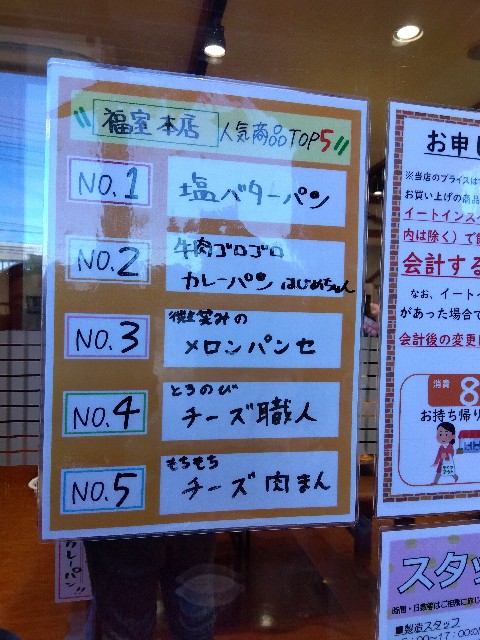 福室本店 人気商品TOP5
NO.1 塩バターパン
NO.2 牛肉ゴロゴロ
カレーパン はじめちゃん
NO.3 微笑みの
メロンパンセ
NO.4 とろのび
チーズ職人
NO.5 もちもち
チーズ肉まん
カレーパン
お申し
※当店のプライスは
お買い上げの商品
イートインス
内は除く）で
会計する
なお、イート
があった場合
会計後の変更
消費
8
お持ち帰り
スタッ
時間・日数等はご相談に応じ
■製造スタッフ